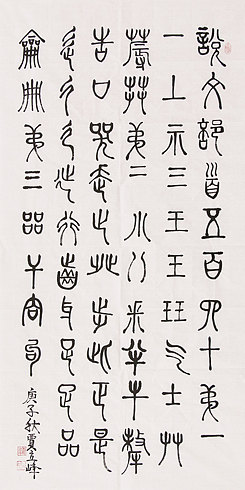 說文部首五百四十弟一
一丄示三王玉玨气士艸
蓐茻弟二小八釆半牛犛
告口哭走止癶步此正是
辵彳廴㢟行齒牙足疋品
龠冊弟三㗊干㕯句
庚子秋夏峰